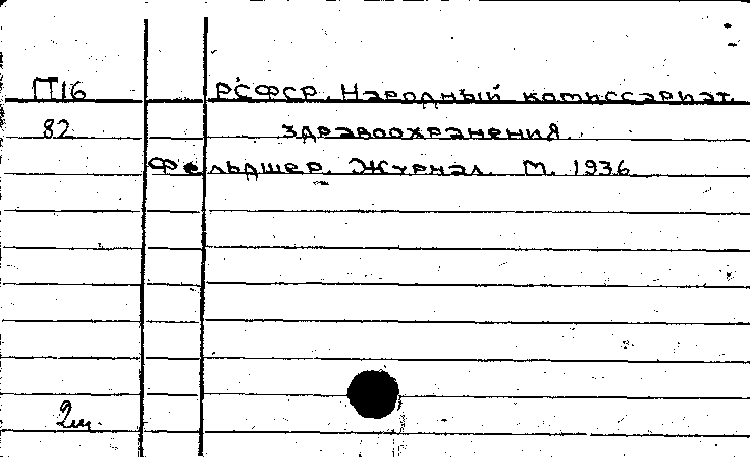 П16 РСФСР. Народный комиссариат
82 здравоохранения.
Фельдшер. Журнал. М. 1936
2ш.